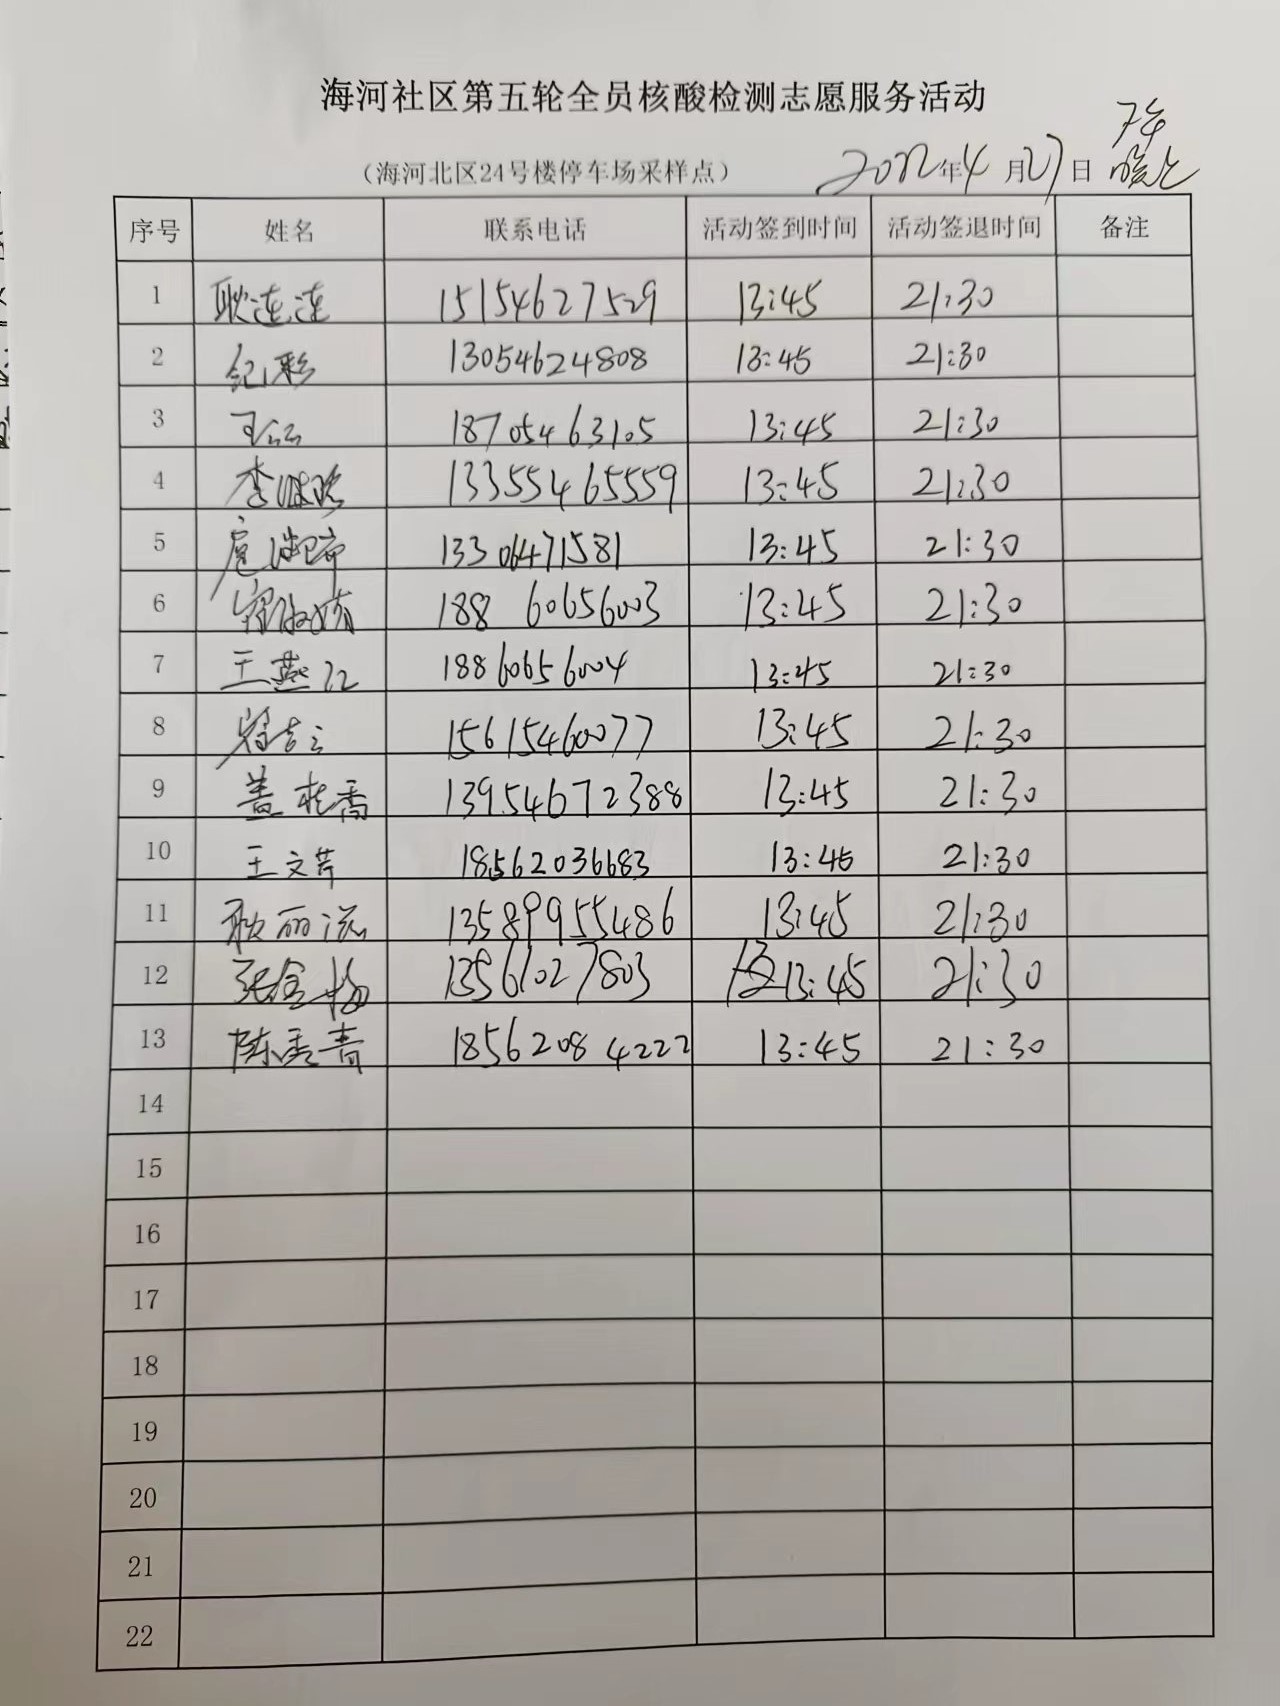 海河社区第五轮全员核酸检测志愿服务活动
下午
(海河北区24号楼停车场采样点) 2022年4月27日 晚上
序号 姓名 联系电话 活动签到时间 活动签退时间 备注
1 耿连连 15154627529 13:45 21:30
2 纪彩 13054624808 13:45 21:30
3 18705463105 13:45 21:30
4 李 13355465559 13:45 21:30
5 13306471581 13:45 21:30
6 18860656003 13:45 21:30
7 王燕 18860656004 13:45 21:30
8 15615460077 13:45 21:30
9 盖桂香 13954672388 13:45 21:30
10 王文芹 18562036683 13:45 21:30
11 耿丽滋 13589955486 13:45 21:30
12 张金梅 13561027803 13:45 21:30
13 陈秀青 18562084222 13:45 21:30
14
15
16
17
18
19
20
21
22